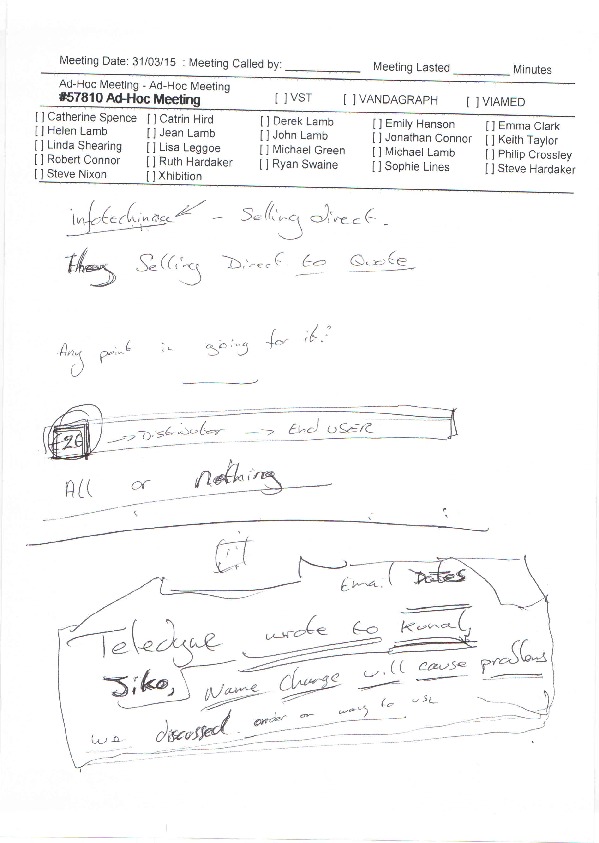 Meeting Date: 31/03/15 : Meeting Called by: ____________ Meeting Lasted _________ Minutes
Ad-Hoc Meeting - Ad-Hoc Meeting
#57810 Ad-Hoc Meeting [ ] VST [ ] VANDAGRAPH [ ] VIAMED
[ ] Catherine Spence [ ] Catrin Hird [ ] Derek Lamb [ ] Emily Hanson [ ] Emma Clark
[ ] Helen Lamb [ ] Jean Lamb [ ] John Lamb [ ] Jonathan Connor [ ] Keith Taylor
[ ] Linda Shearing [ ] Lisa Leggoe [ ] Michael Green [ ] Michael Lamb [ ] Philip Crossley
[ ] Robert Connor [ ] Ruth Hardaker [ ] Ryan Swaine [ ] Sophie Lines [ ] Steve Hardaker
[ ] Steve Nixon [ ] Xhibition
- Selling direct.
They Selling Direct to Quote
Any point in going for it?
→ Distributor → End USER
All or nothing
Email Dates
Teledyne wrote to Kunal,
Jiko, Name Change will cause problems
we discussed order or way to use